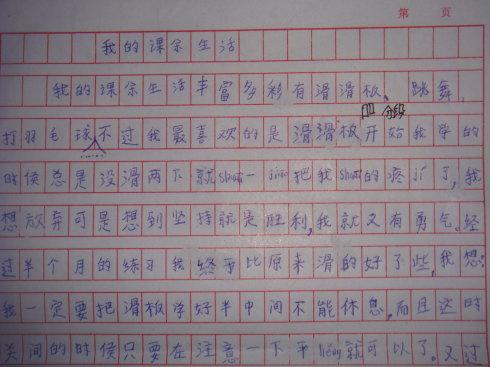 第 页
我的课余生活
我的课余生活丰富多彩有滑滑板、跳舞、
分段
打羽毛球不过我最喜欢的是滑滑板开始我学的
时侯总是没滑两下就shuai一jiao把我shuai的疼了,我
想放弃可是想到坚持就是胜利,我就又有勇气。经
过半个月的练习我终于比原来滑的好了些,我想:
我一定要把滑板学好半中间不能休息。而且这时
关间的时侯只要在注意一下平heng就可以了。又过